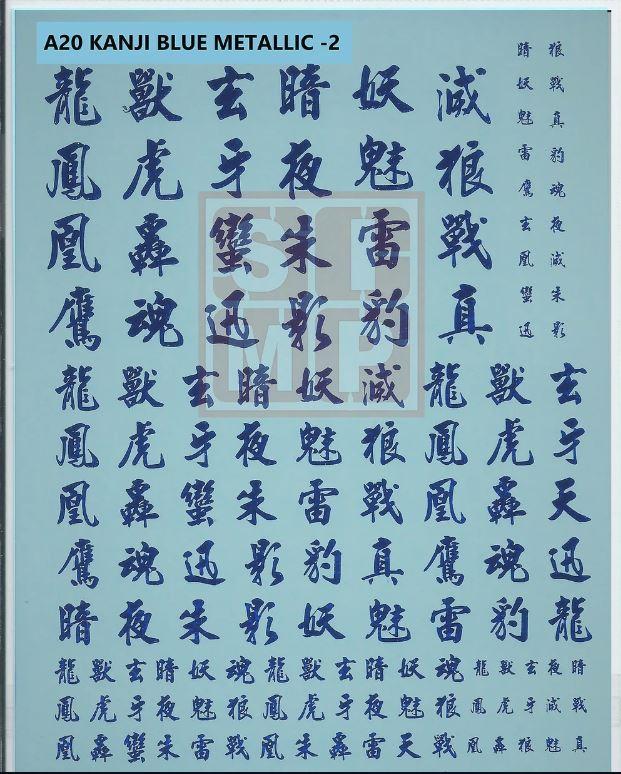 A20 KANJI BLUE METALLIC -2
龍 獸 玄 暗 妖 滅
鳳 虎 牙 夜 魅 狼
凰 轟 蠻 朱 雷 戰
鷹 魂 迅 影 豹 真
暗 狼
妖 戰
魅 真
雷 豹
鷹 魂
玄 夜
凰 滅
蠻 朱
迅 影
SIMP
龍 獸 玄 暗 妖 滅 龍 獸 玄
鳳 虎 牙 夜 魅 狼 鳳 虎 牙
凰 轟 蠻 朱 雷 戰 凰 轟 天
鷹 魂 迅 影 豹 真 鷹 魂 迅
暗 夜 朱 影 妖 魅 雷 豹 龍
龍 獸 玄 暗 妖 魂 龍 獸 玄 暗 妖 魂 龍 獸 玄 夜 暗
鳳 虎 牙 夜 魅 狼 鳳 虎 牙 夜 魅 狼 鳳 虎 牙 滅 戰
凰 轟 蠻 朱 雷 戰 凰 朱 轟 雷 天 戰 凰 轟 狼 魅 真